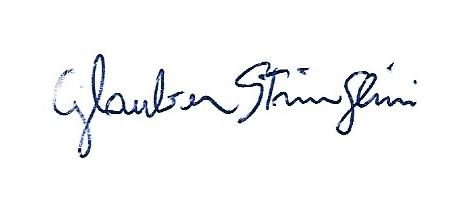 Glauber Stringlini